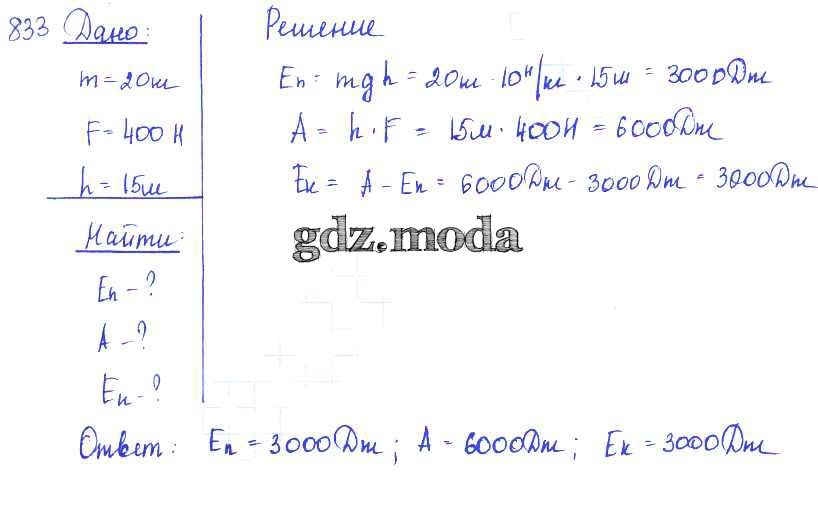 833 Дано:
m = 20кг
F = 400 Н
h = 15м
Найти:
Eп - ?
A - ?
Eк - ?
Решение
Eп = mgh = 20кг · 10 Н/кг · 15м = 3000Дж
A = h · F = 15м · 400Н = 6000Дж
Eк = A - Eп = 6000Дж - 3000Дж = 3000Дж
gdz.moda
Ответ: Eп = 3000Дж; A = 6000Дж; Eк = 3000Дж